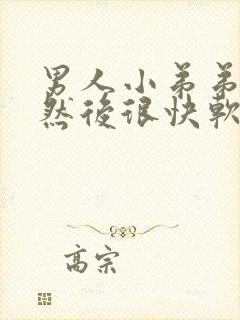 男人小弟弟
然後很快軟
高宗